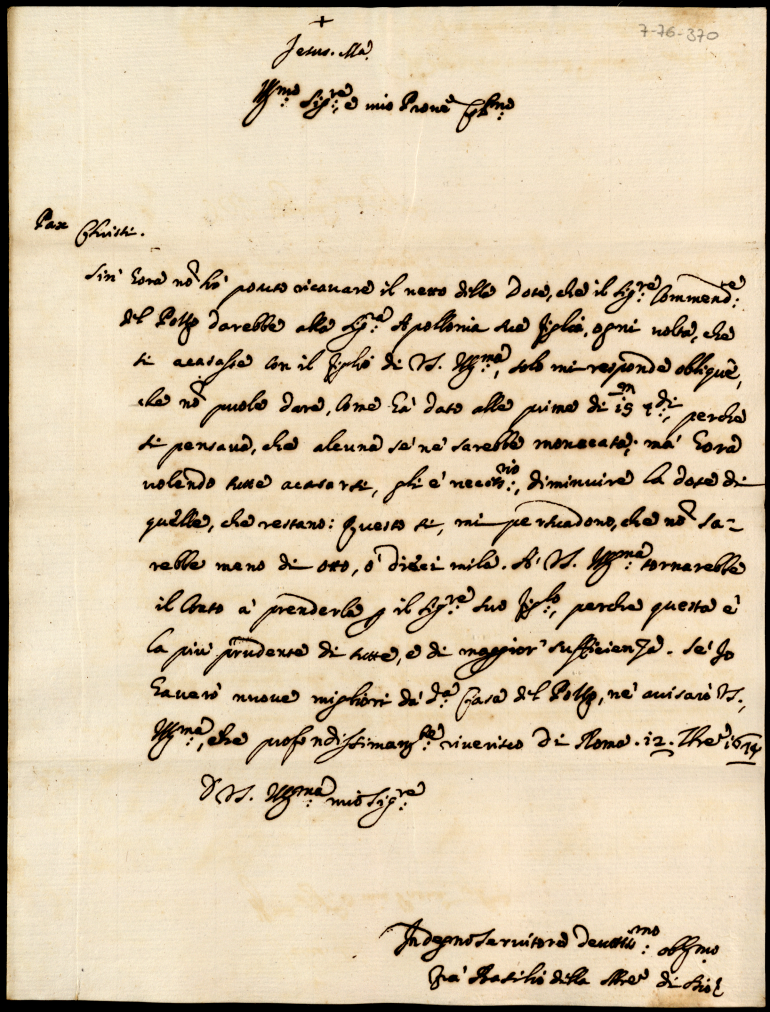 7-76-370
+
Jesus. Ma.
Ill.mo Sig.re e mio Prone Col.mo
Pax Christi.
Sin' hora nõ hò potuto ricavare il netto della Dote, che il Sig.re Commend.re
del Pozzo darebbe alla Sig.ra Apollonia sua figlia, ogni volta, che
si acasasse con il figlio di V.S. Ill.ma, solo mi responde obliquè,
che nõ puole dare, come hà dato alle prime di 15 m di, perche
si pensava, che alcuna se ne sarebbe monacata; mà hora
volendo tutte acasarsi, gli è necess.rio, diminuire la dote di
quelle, che restano: Questo si, mi persuadono, che nõ sa-
rebbe meno di otto, ò dieci mila. A' V.S. Ill.ma tornarebbe
il conto à prenderla p il Sig.re suo figlo, perche questa è
la più prudente di tutte, e di maggior sufficienza. Se Io
haverò nuove migliori dà d.a Casa del Pozzo, ne avisarò V.S.
Ill.ma, che profondissimam.te riverisco di Roma. 12. 1674
D V.S. Ill.ma mio Sig.re
Indegno Servitore Devotis.mo obl.mo
frà Basilio della Mre di Dio